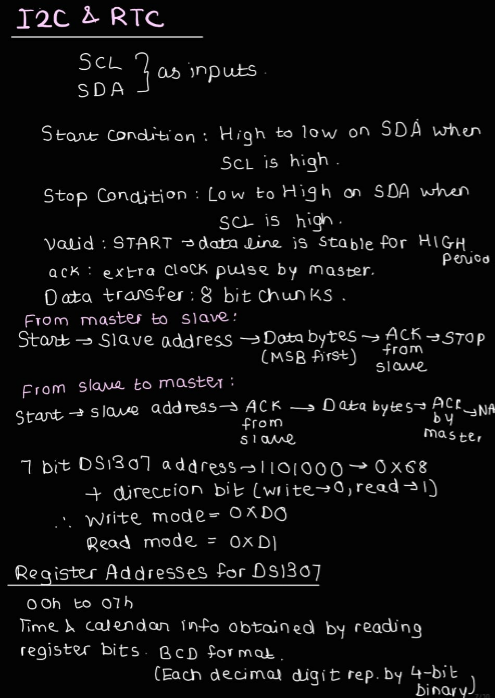 I2C & RTC
SCL
SDA } as inputs.
Start Condition : High to low on SDA when
SCL is high.
Stop Condition : Low to High on SDA when
SCL is high.
Valid : START → data line is stable for HIGH period
ack : extra clock pulse by master.
Data transfer : 8 bit chunks.
From master to slave :
Start → Slave address → Data bytes → ACK → STOP
(MSB first) from
slave
From slave to master :
Start → slave address → ACK → Data bytes → ACK → NA
from by
slave master
7 bit DS1307 address → 1101000 → 0X68
+ direction bit (write → 0, read → 1)
∴ Write mode = 0XD0
Read mode = 0XD1
Register Addresses for DS1307
00h to 07h
Time & calendar info obtained by reading
register bits. BCD format.
(Each decimal digit rep. by 4-bit
binary)